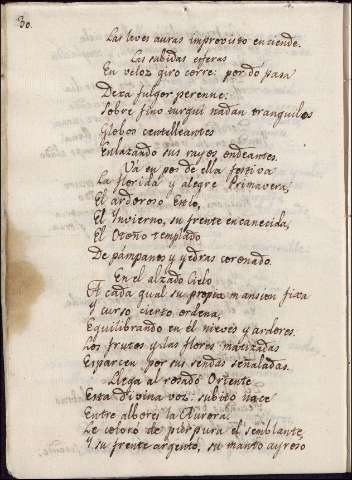 30.
Las leves auras improviso enciende.
Las subidas esferas
En veloz giro corre: por dó pasa
Dexa fulgor perenne:
Sobre fino turqui nadan tranquilos
Globos centelleantes
Enlazando sus rayos ondeantes.
Va en pos de ella festiva
La florida y alegre Primavera,
El ardoroso Estío,
El Invierno, su frente encanecida,
El Otoño templado
De pámpanos y yedras coronado.
En el alzado Cielo
A cada qual su propia mansion fixa
Y curso cierto ordena,
Equilibrando en el nieves y ardores.
Los frutos y las flores matizadas
Esparcen por sus sendas señaladas.
Llega al rosado Oriente
Esta divina voz: subito nace
Entre albores la Aurora:
Le coloró de púrpura el semblante,
Y su frente argentó, su manto ayroso